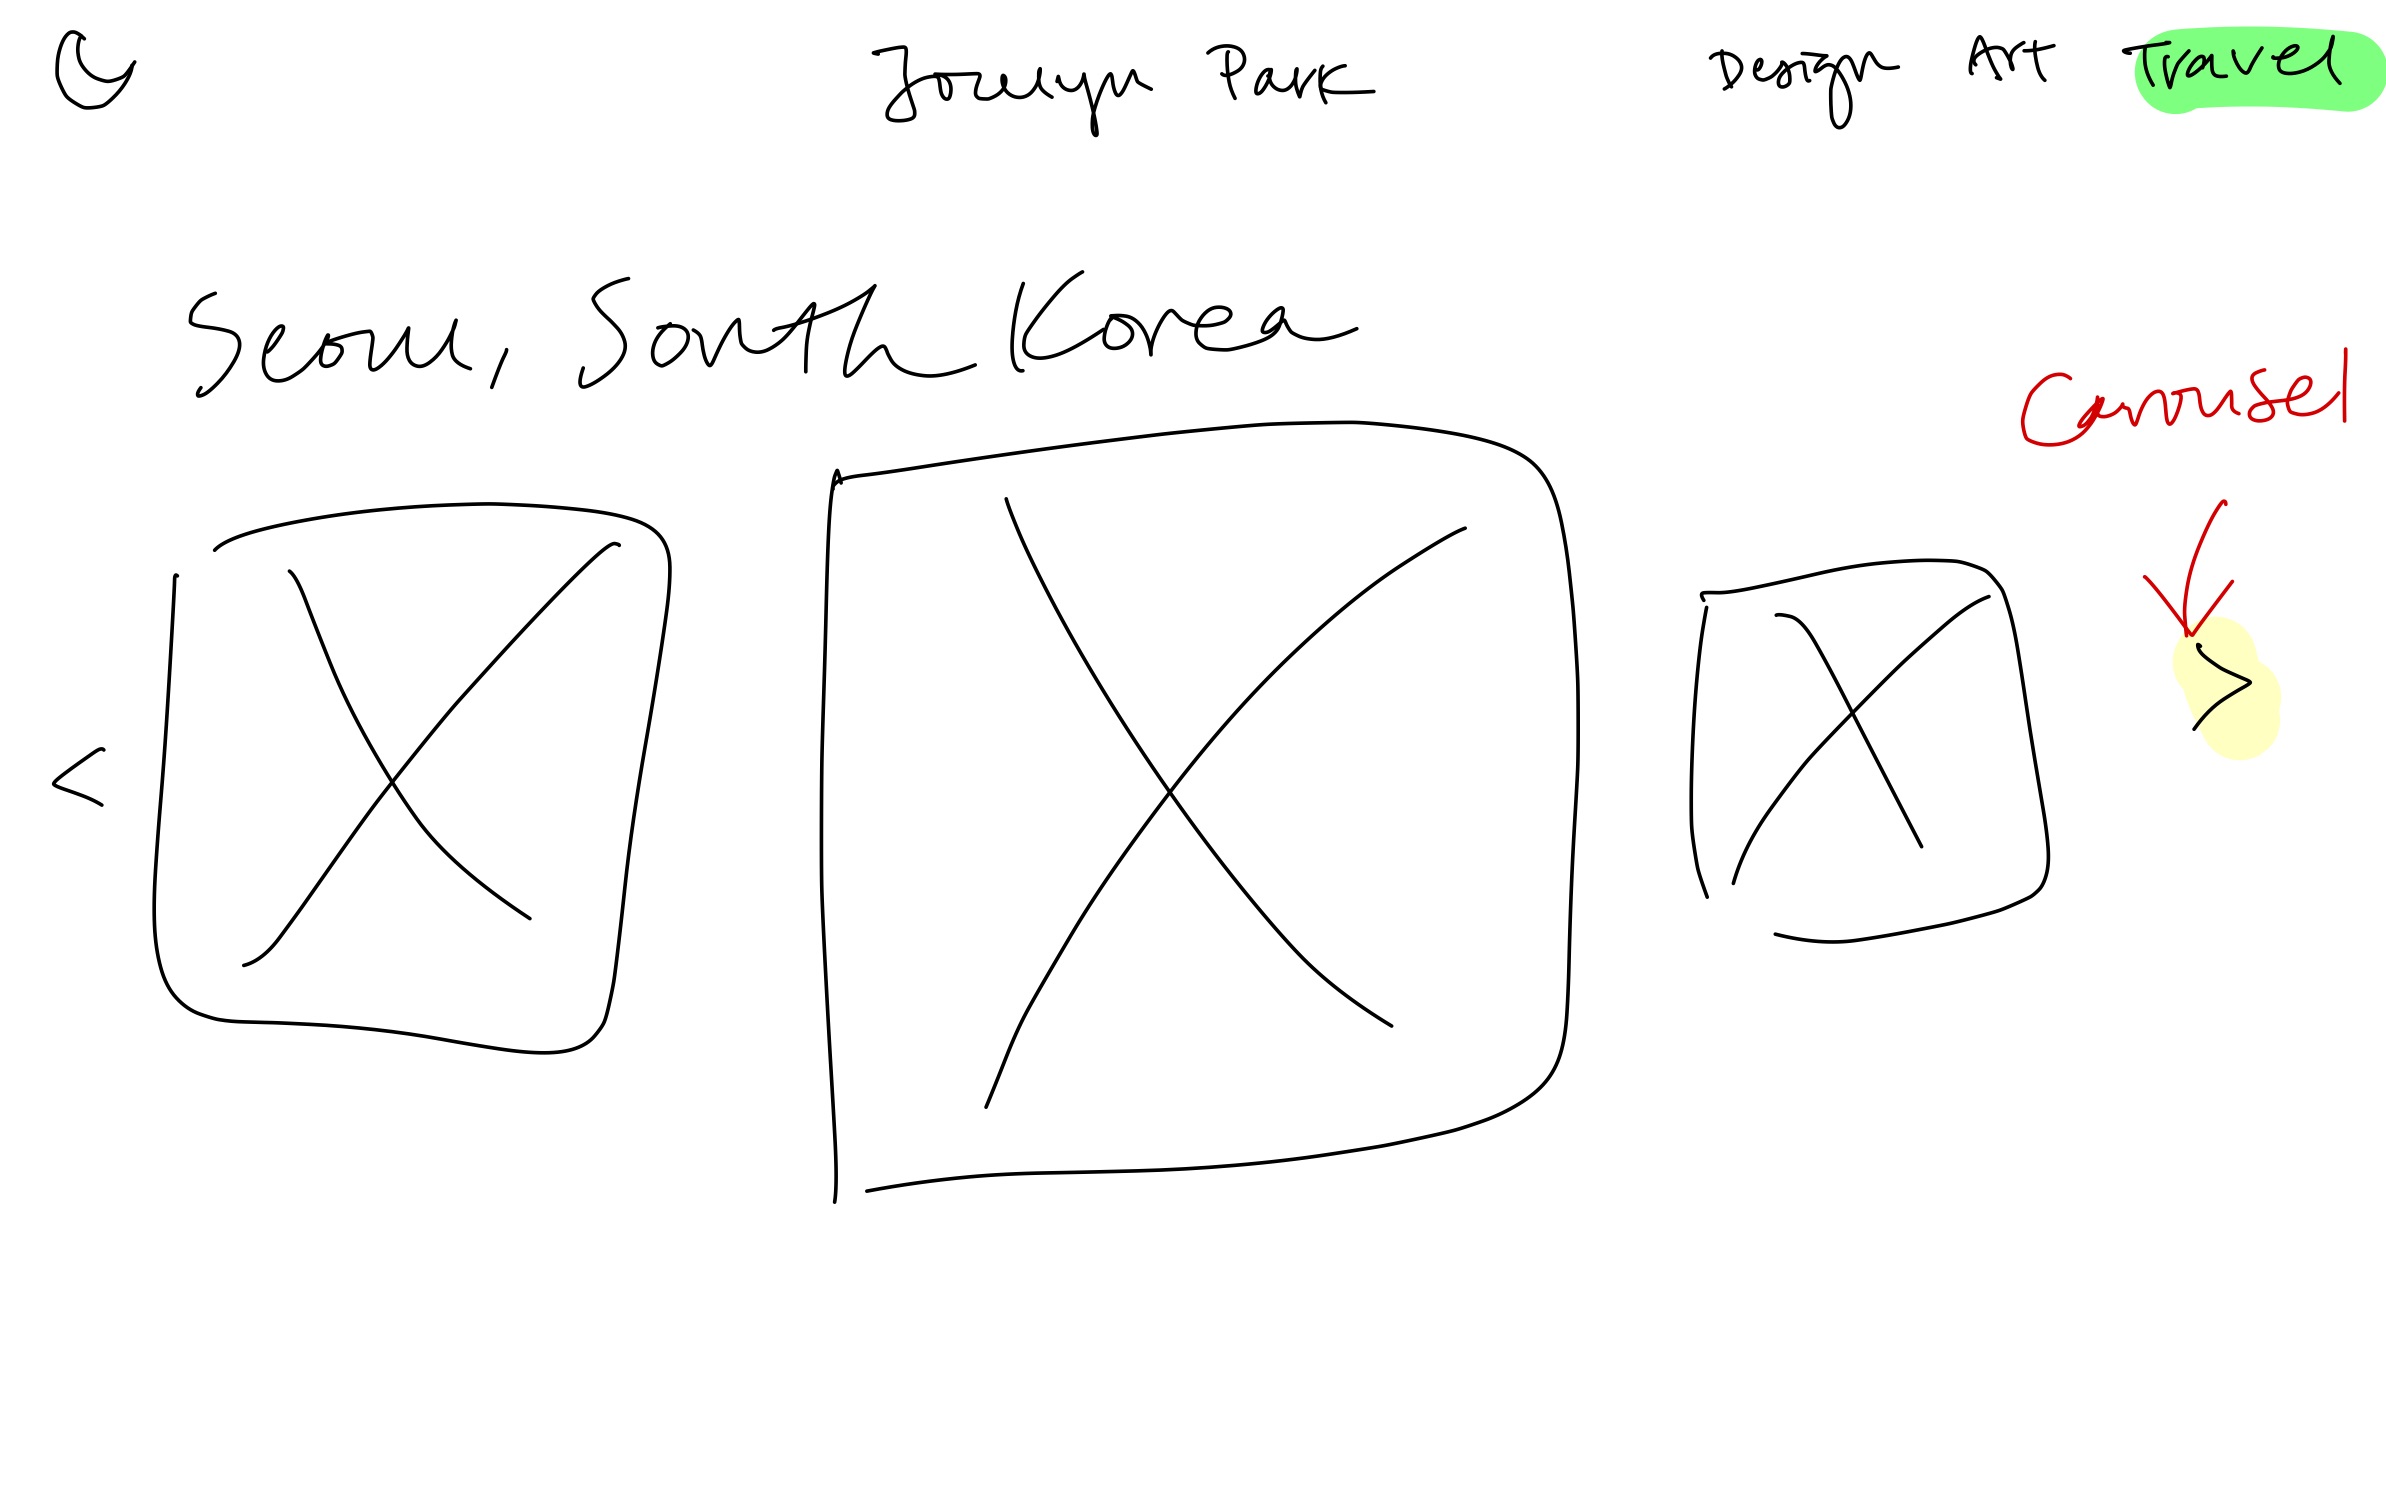 Park Design Art Travel
Seoul, South Korea
Carousel
<
>